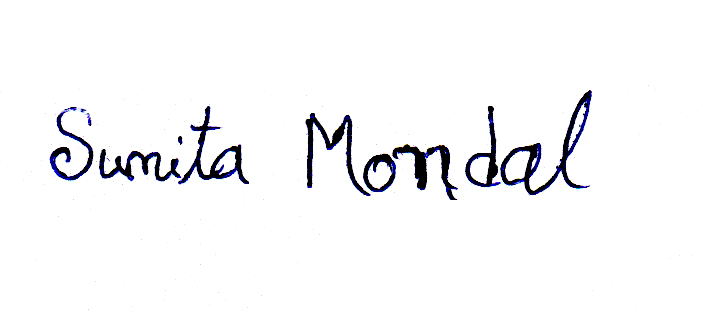 Sunita Mondal